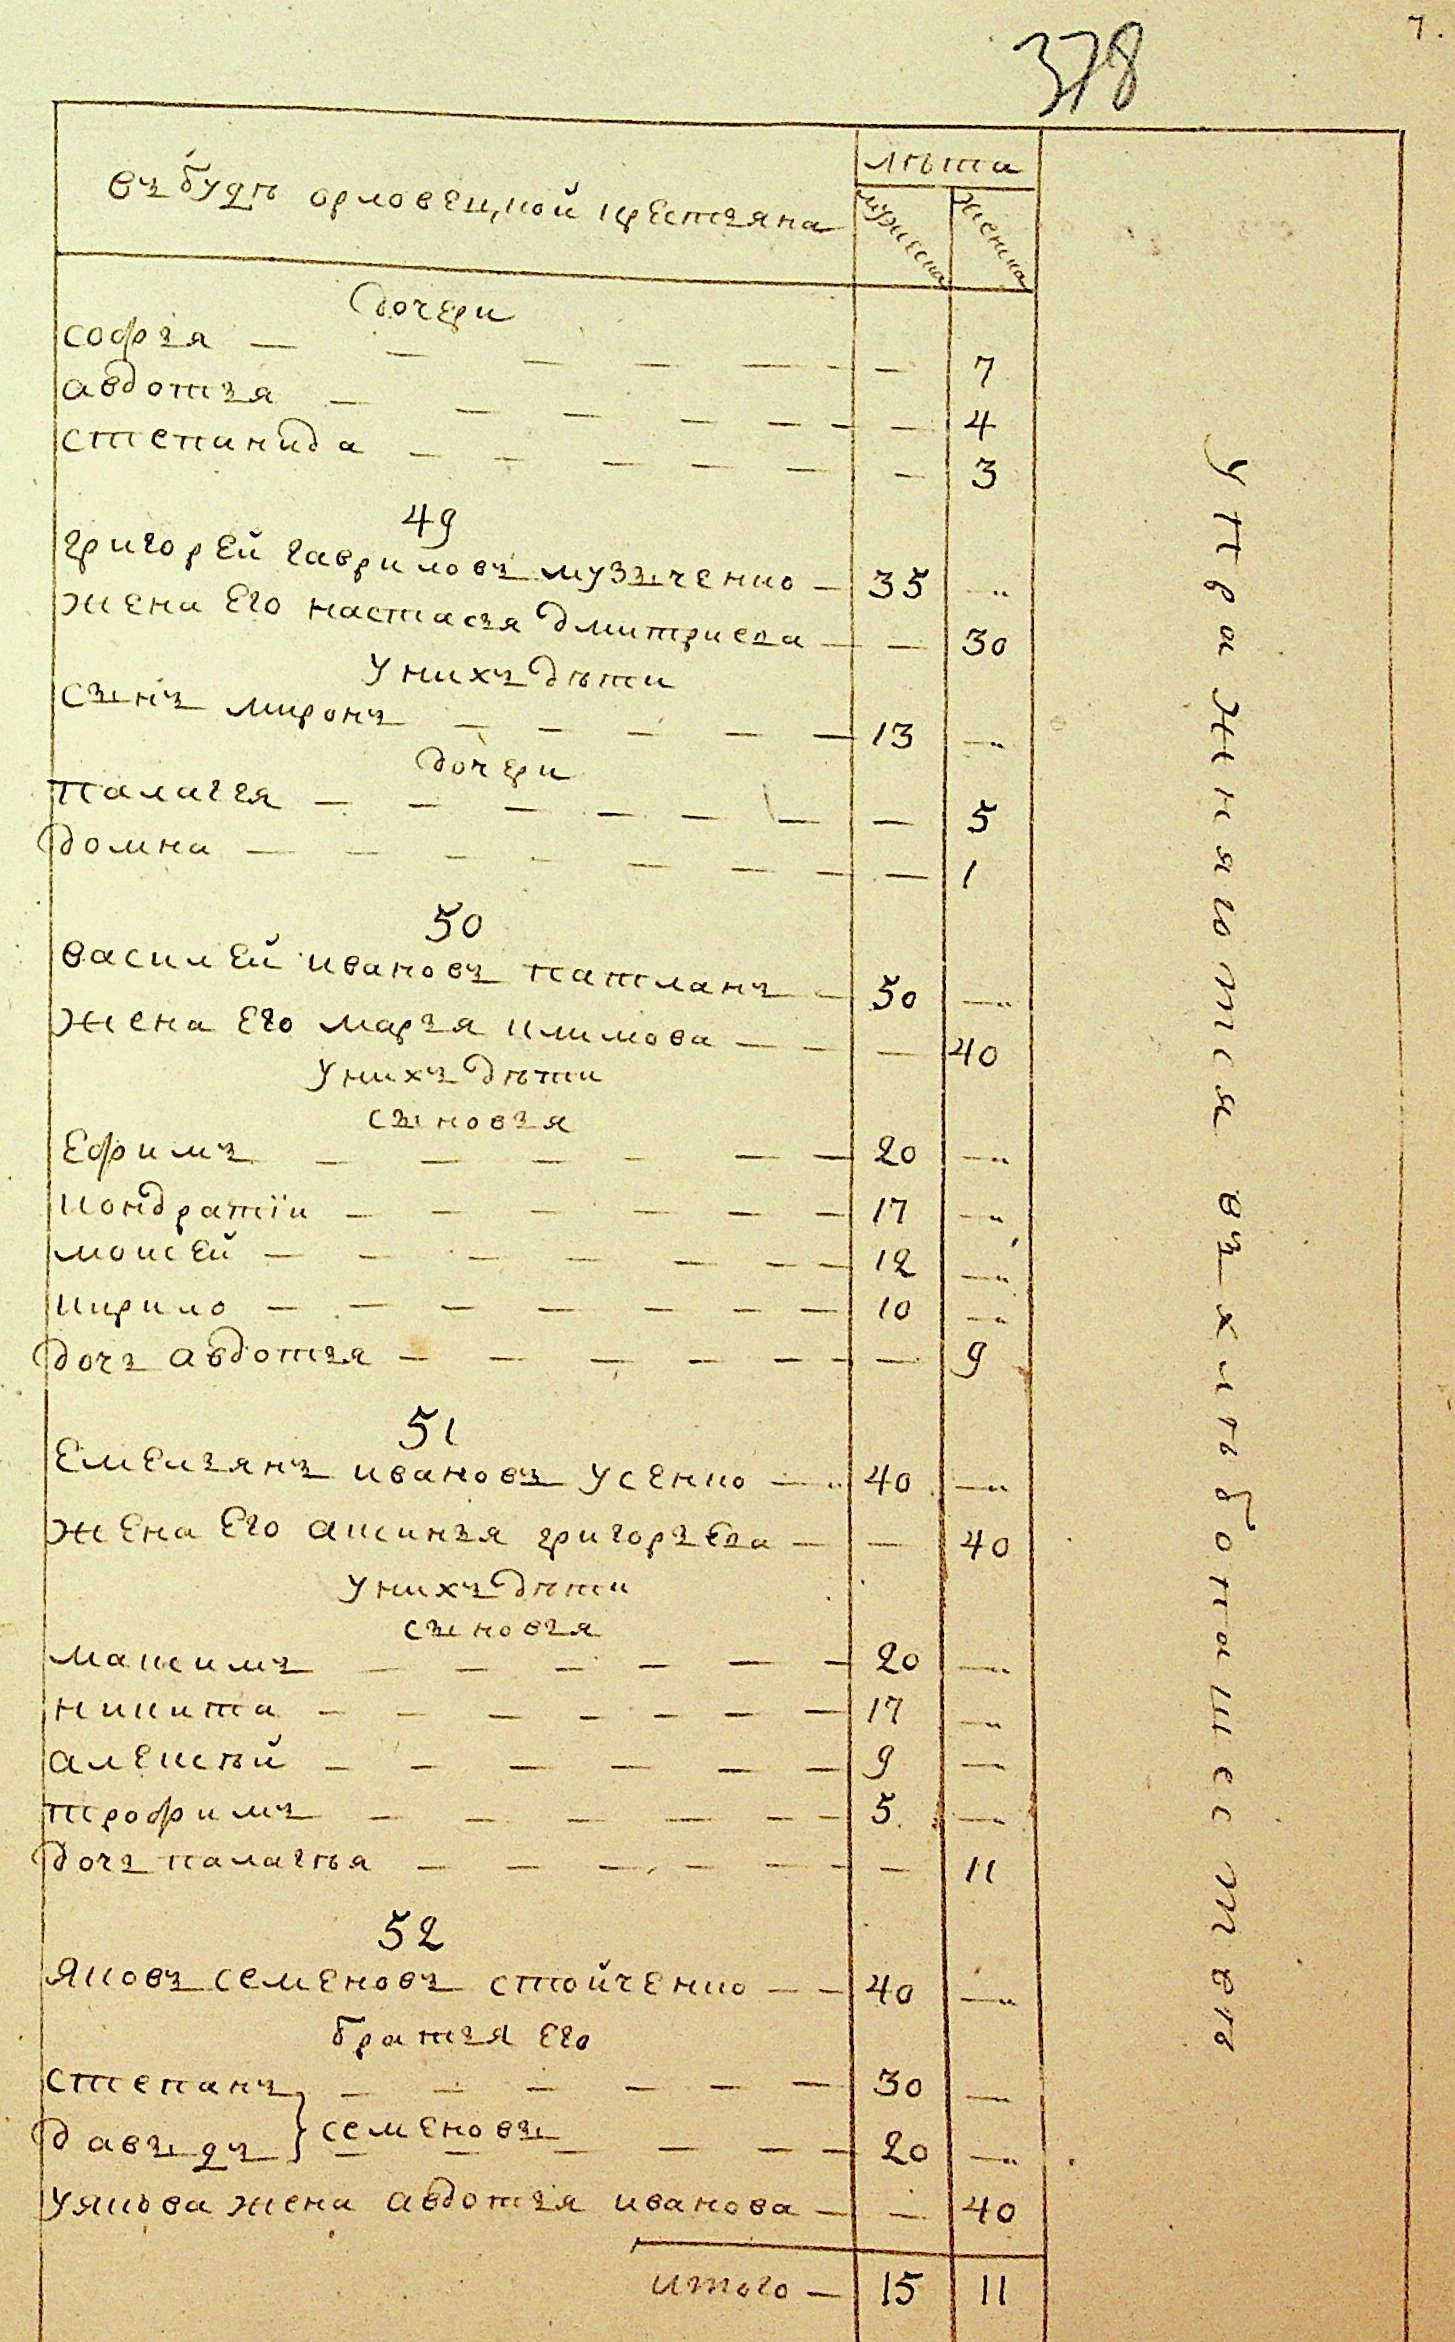 378
7.
въ будѣ орловецкой крестьяна
лѣта
мужеска
женска
дочери
софья — — — — — — — 7
авдотья — — — — — — — 4
степанида — — — — — — 3
49
григорей гавриловъ музыченко — 35 — „
жена его настасья дмитриева — — 30
у нихъ дѣти
сынъ миронъ — — — — — 13 — „
дочери
палагея — — — — — — — 5
домна — — — — — — — — 1
50
василей ивановъ патланъ — 50 — „
жена его марья климова — — — 40
у нихъ дѣти
сыновья
ефимъ — — — — — — 20 — „
кондратїи — — — — — — 17 — „
моисей — — — — — — — 12 — „
кирило — — — — — — — 10 — „
дочь авдотья — — — — — — — 9
51
емельянъ ивановъ усенко — „ 40 — „
жена его аксинья григорьева — — 40
у нихъ дѣти
сыновья
максимъ — — — — — — 20 — „
никита — — — — — — — 17 — „
алексѣй — — — — — — 9 — „
трофимъ — — — — — — 5 — „
дочь палагѣя — — — — — — — 11
52
яковъ семеновъ стойченко — — 40 — „
братья его
степанъ — — — — — — 30 —
давыдъ } семеновы — — — — — — 20 — „
у якова жена авдотья иванова — — 40
итого — 15 11
упражняются въ хлѣбопашествѣ